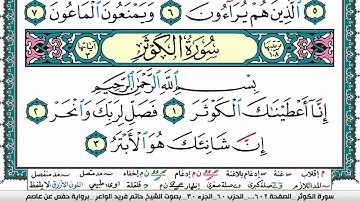 ٥ ٱلَّذِينَ هُمْ يُرَآءُونَ ٦ وَيَمْنَعُونَ ٱلْمَاعُونَ ٧
سُورَةُ ٱلْكَوْثَرِ
بِسْمِ ٱللَّهِ ٱلرَّحْمَٰنِ ٱلرَّحِيمِ
إِنَّآ أَعْطَيْنَٰكَ ٱلْكَوْثَرَ ١ فَصَلِّ لِرَبِّكَ وَٱنْحَرْ ٢
إِنَّ شَانِئَكَ هُوَ ٱلْأَبْتَرُ ٣
سورة الكوثر الصفحة ٦٠٢ الحزب ٦٠ الجزء ٣٠ بصوت الشيخ حاتم فريد الواعر برواية حفص عن عاصم